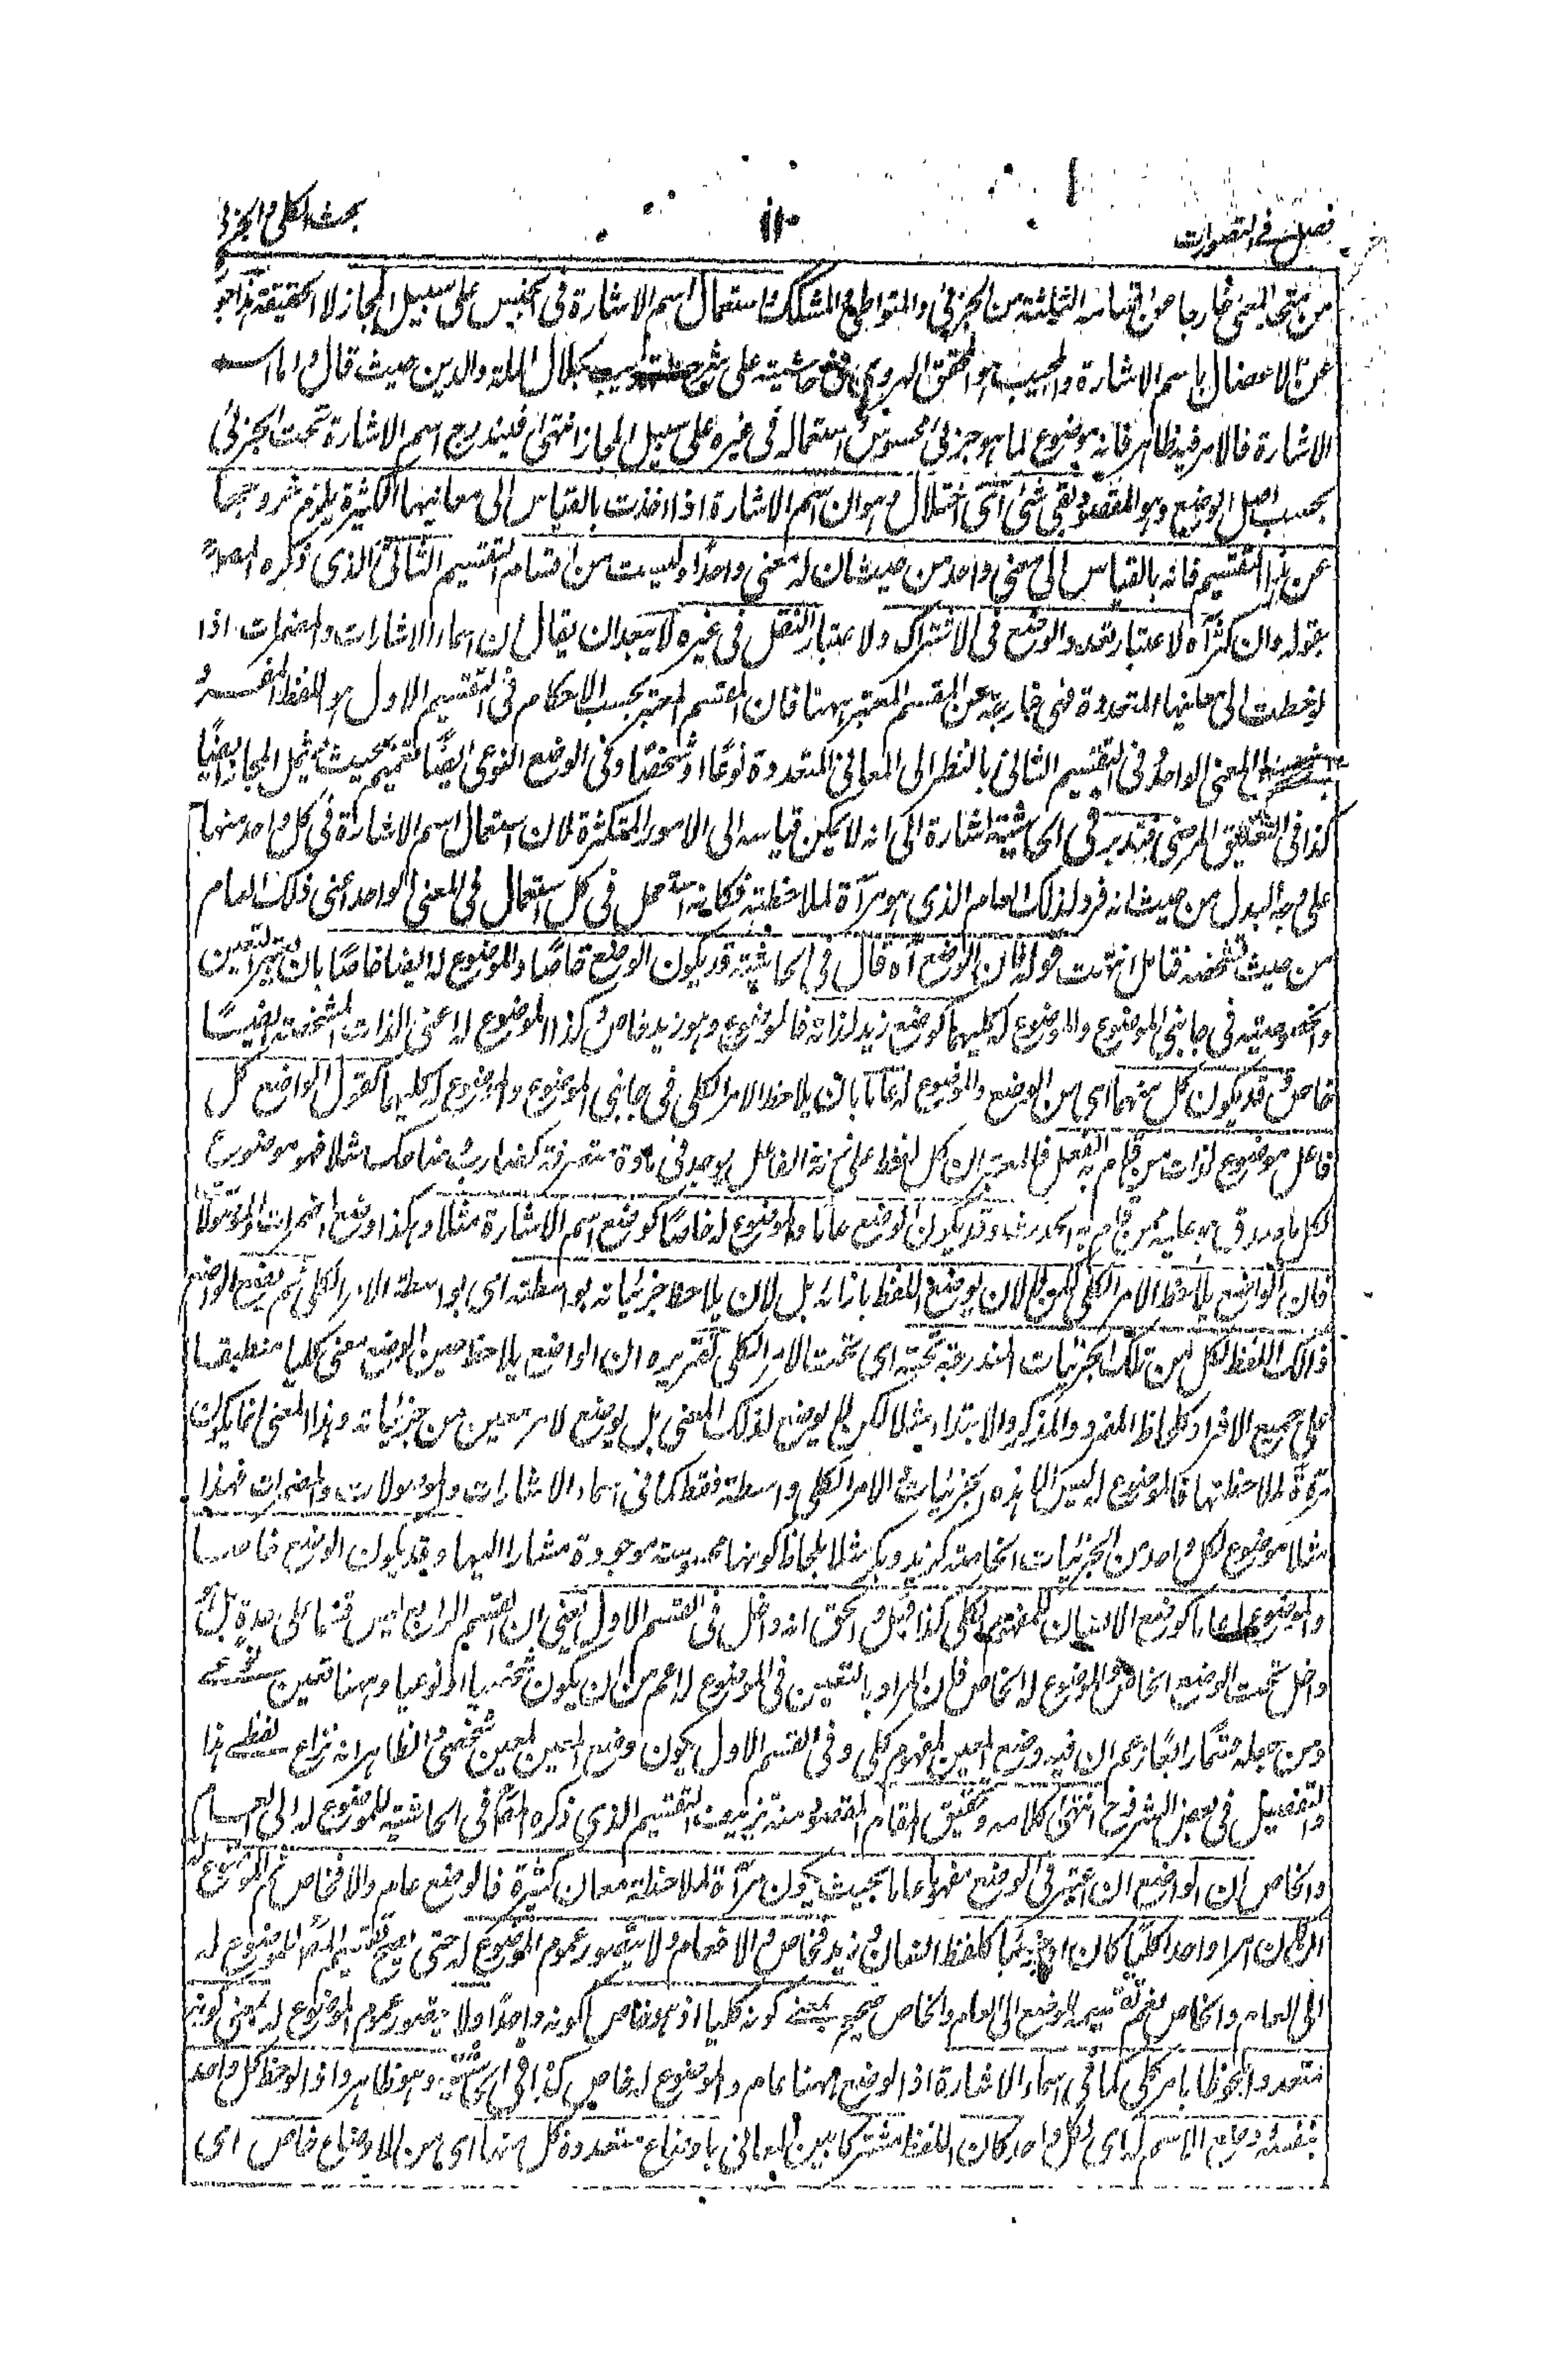 فصل فى التصورات
١١٠
بحث الكلى والجزئى
من متحد المعنى خارجا عن اقسامه الثلثة من الجزئى والمتواطى والمشكك استعمال اسم الاشارة فى الجنس على سبيل المجاز لا الحقيقة هذا جواب
عن الاعضال باسم الاشارة والمجيب هو المحقق الهروى فى حاشيته على شرح التهذيب لجلال الملة والدين حيث قال واما اسم
الاشارة فالامر فيه ظاهر فانه موضوع لما هو جزئى محسوس استعماله فى غيره على سبيل المجاز انتهى فيندرج اسم الاشارة تحت الجزئى
بحسب اصل الوضع وهو المقصود بقى شئ اى اختلال وهو ان اسم الاشارة اذا اخذت بالقياس الى معانيها الكثيرة يلزم خروجها
عن هذا التقسيم فانه بالقياس الى معنى واحد من حيث ان له معنى واحدا وليست من اقسام التقسيم الثانى الذى ذكره المصنف
بقوله وان كثر آه لاعتبار تعدد الوضع فى الاشتراك ولاعتبار النقل فى غيره لا يبعد ان يقال ان اسماء الاشارات والمضمرات اذا
لوحظت الى معانيها المتعددة فهى خارجة عن المقسم المعتبر ههنا فان المقسم المعتبر بحسب الاحكام فى التقسيم الاول هو اللفظ المفرد
المعنى الواحد وفى التقسيم الثانى بالنظر الى المعانى المتعددة نوعا او شخصا وفى الوضع النوعى ايضا تعميم بحيث يشمل المجاز ايضا
كذا فى التعليق المرضى فتدبر فى الحاشية اشارة الى انه لا يمكن قياسه الى الامور المتكثرة لان استعمال اسم الاشارة فى كل واحد منها
على وجه البدل من حيث انه فرد لذلك العام الذى هو مرآة لملاحظته فكانه استعمل فى كل استعمال فى المعنى الواحد اعنى ذلك العام
من حيث تشخصه فتامل انتهت قوله فان الوضع آه قال فى الحاشية قد يكون الوضع خاصا والموضوع له ايضا خاصا بان يعتبر التعين
والخصوصية فى جانبى الموضوع والموضوع له كليهما كوضع زيد لذاته فالموضوع وهو زيد خاص وكذا الموضوع له اعنى الذات المشخصة ايضا
خاص وقد يكون كل منهما اى من الوضع والموضوع له عاما بان يلاحظ الامر الكلى فى جانبى الموضوع والموضوع له كليهما كقول الواضع كل
فاعل موضوع لذات من قام به الفعل فالمعتبر ان كل لفظ على زنة الفاعل يوجد فى مادة متصرفة كضارب وضاحك مثلا فهو موضوع
لكل ما صدق عليه من قام به الحدث وقد يكون الوضع عاما والموضوع له خاصا كوضع اسم الاشارة مثلا وهكذا وضع المضمرات والموصولات
فان الواضع يلاحظ الامر الكلى لا لان يوضع اللفظ بازائه بل لان يلاحظ جزئياته بواسطته اى بواسطة الامر الكلى ثم يضع الواضع
ذالك اللفظ لكل من تلك الجزئيات المندرجة تحته اى تحت الامر الكلى تقريره ان الواضع يلاحظ حين الوضع معنى كليا منطبقا
على جميع الافراد كلحاظ المفرد والمذكر والابتداء مثلا لكن لم يوضع لذلك المعنى بل يوضع لامر معين من جزئياته وهذا المعنى انما يكون
مرآة لملاحظتها فالموضوع له ليس الا هذه الجزئيات والامر الكلى واسطة فقط كما فى اسماء الاشارات والموصولات والمضمرات فهذا
مثلا موضوع لكل واحد من الجزئيات الخاصة كزيد وبكر مثلا بلحاظ كونها محسوسة موجودة مشارا اليها وقد يكون الوضع خاصا
والموضوع له عاما كوضع الانسان للمفهوم الكلى كذا قيل والحق انه داخل فى القسم الاول يعنى ان القسم الرابع ليس قسما على حدة بل هو
داخل تحت الوضع الخاص والموضوع له الخاص فان المراد بالتعين فى الموضوع له اعم من ان يكون شخصيا او نوعيا وههنا تعين نوعى
ومن جعله قسما رابعا زعم ان فيه وضع المعين لمفهوم كلى وفى القسم الاول يكون وضع المعين لمعين شخصى والظاهر انه نزاع لفظى هذا
والتفصيل فى بعض الشروح انتهى كلامه وتحقيق المقام المقصود منه تزييف التقسيم الذى ذكره المصنف فى الحاشية للموضوع له الى العام
والخاص ان الواضع ان اعتبر فى الوضع مفهوما عاما بحيث يكون مرآة لملاحظة معان كثيرة فالوضع عام والا فخاص ثم الموضوع له
ان كان امرا واحدا كليا كان او جزئيا كلفظ انسان وزيد فخاص والا فعام ولا يتصور عموم الموضوع له حتى يصح تقسيم المصنف للموضوع له
الى العام والخاص نعم تقسيمه الوضع الى العام والخاص صحيح بمعنى كونه كليا اذ هو خاص لكونه واحدا ولا يتصور عموم الموضوع له بمعنى كونه
متعددا ملحوظا بامر كلى كما فى اسماء الاشارة اذ الوضع ههنا عام والموضوع له خاص كذا فى الحاشية وهو ظاهر واذا لوحظ كل واحد
بنفسه ووضع الاسم له اى لكل واحد كان اللفظ مشتركا بين المعانى باوضاع متعددة كل منها اى من الاوضاع خاص اى